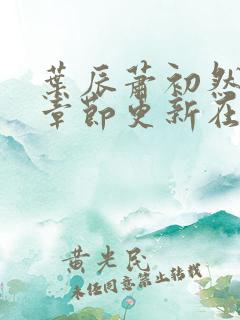 葉辰蕭初然
章節更新在
黄光民
未经同意禁止转载